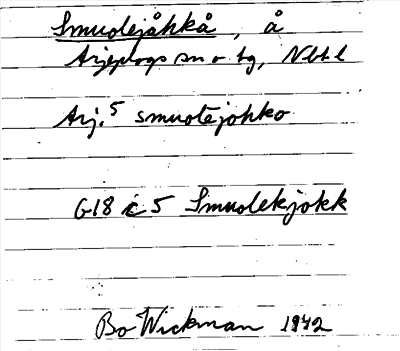 Smuolejåkkå, å
Arjeplogs sn o tg, Nbtl
Arj.5 smuotējohko
G18 i c 5 Smuolekjokk
Bo Wickman 1942